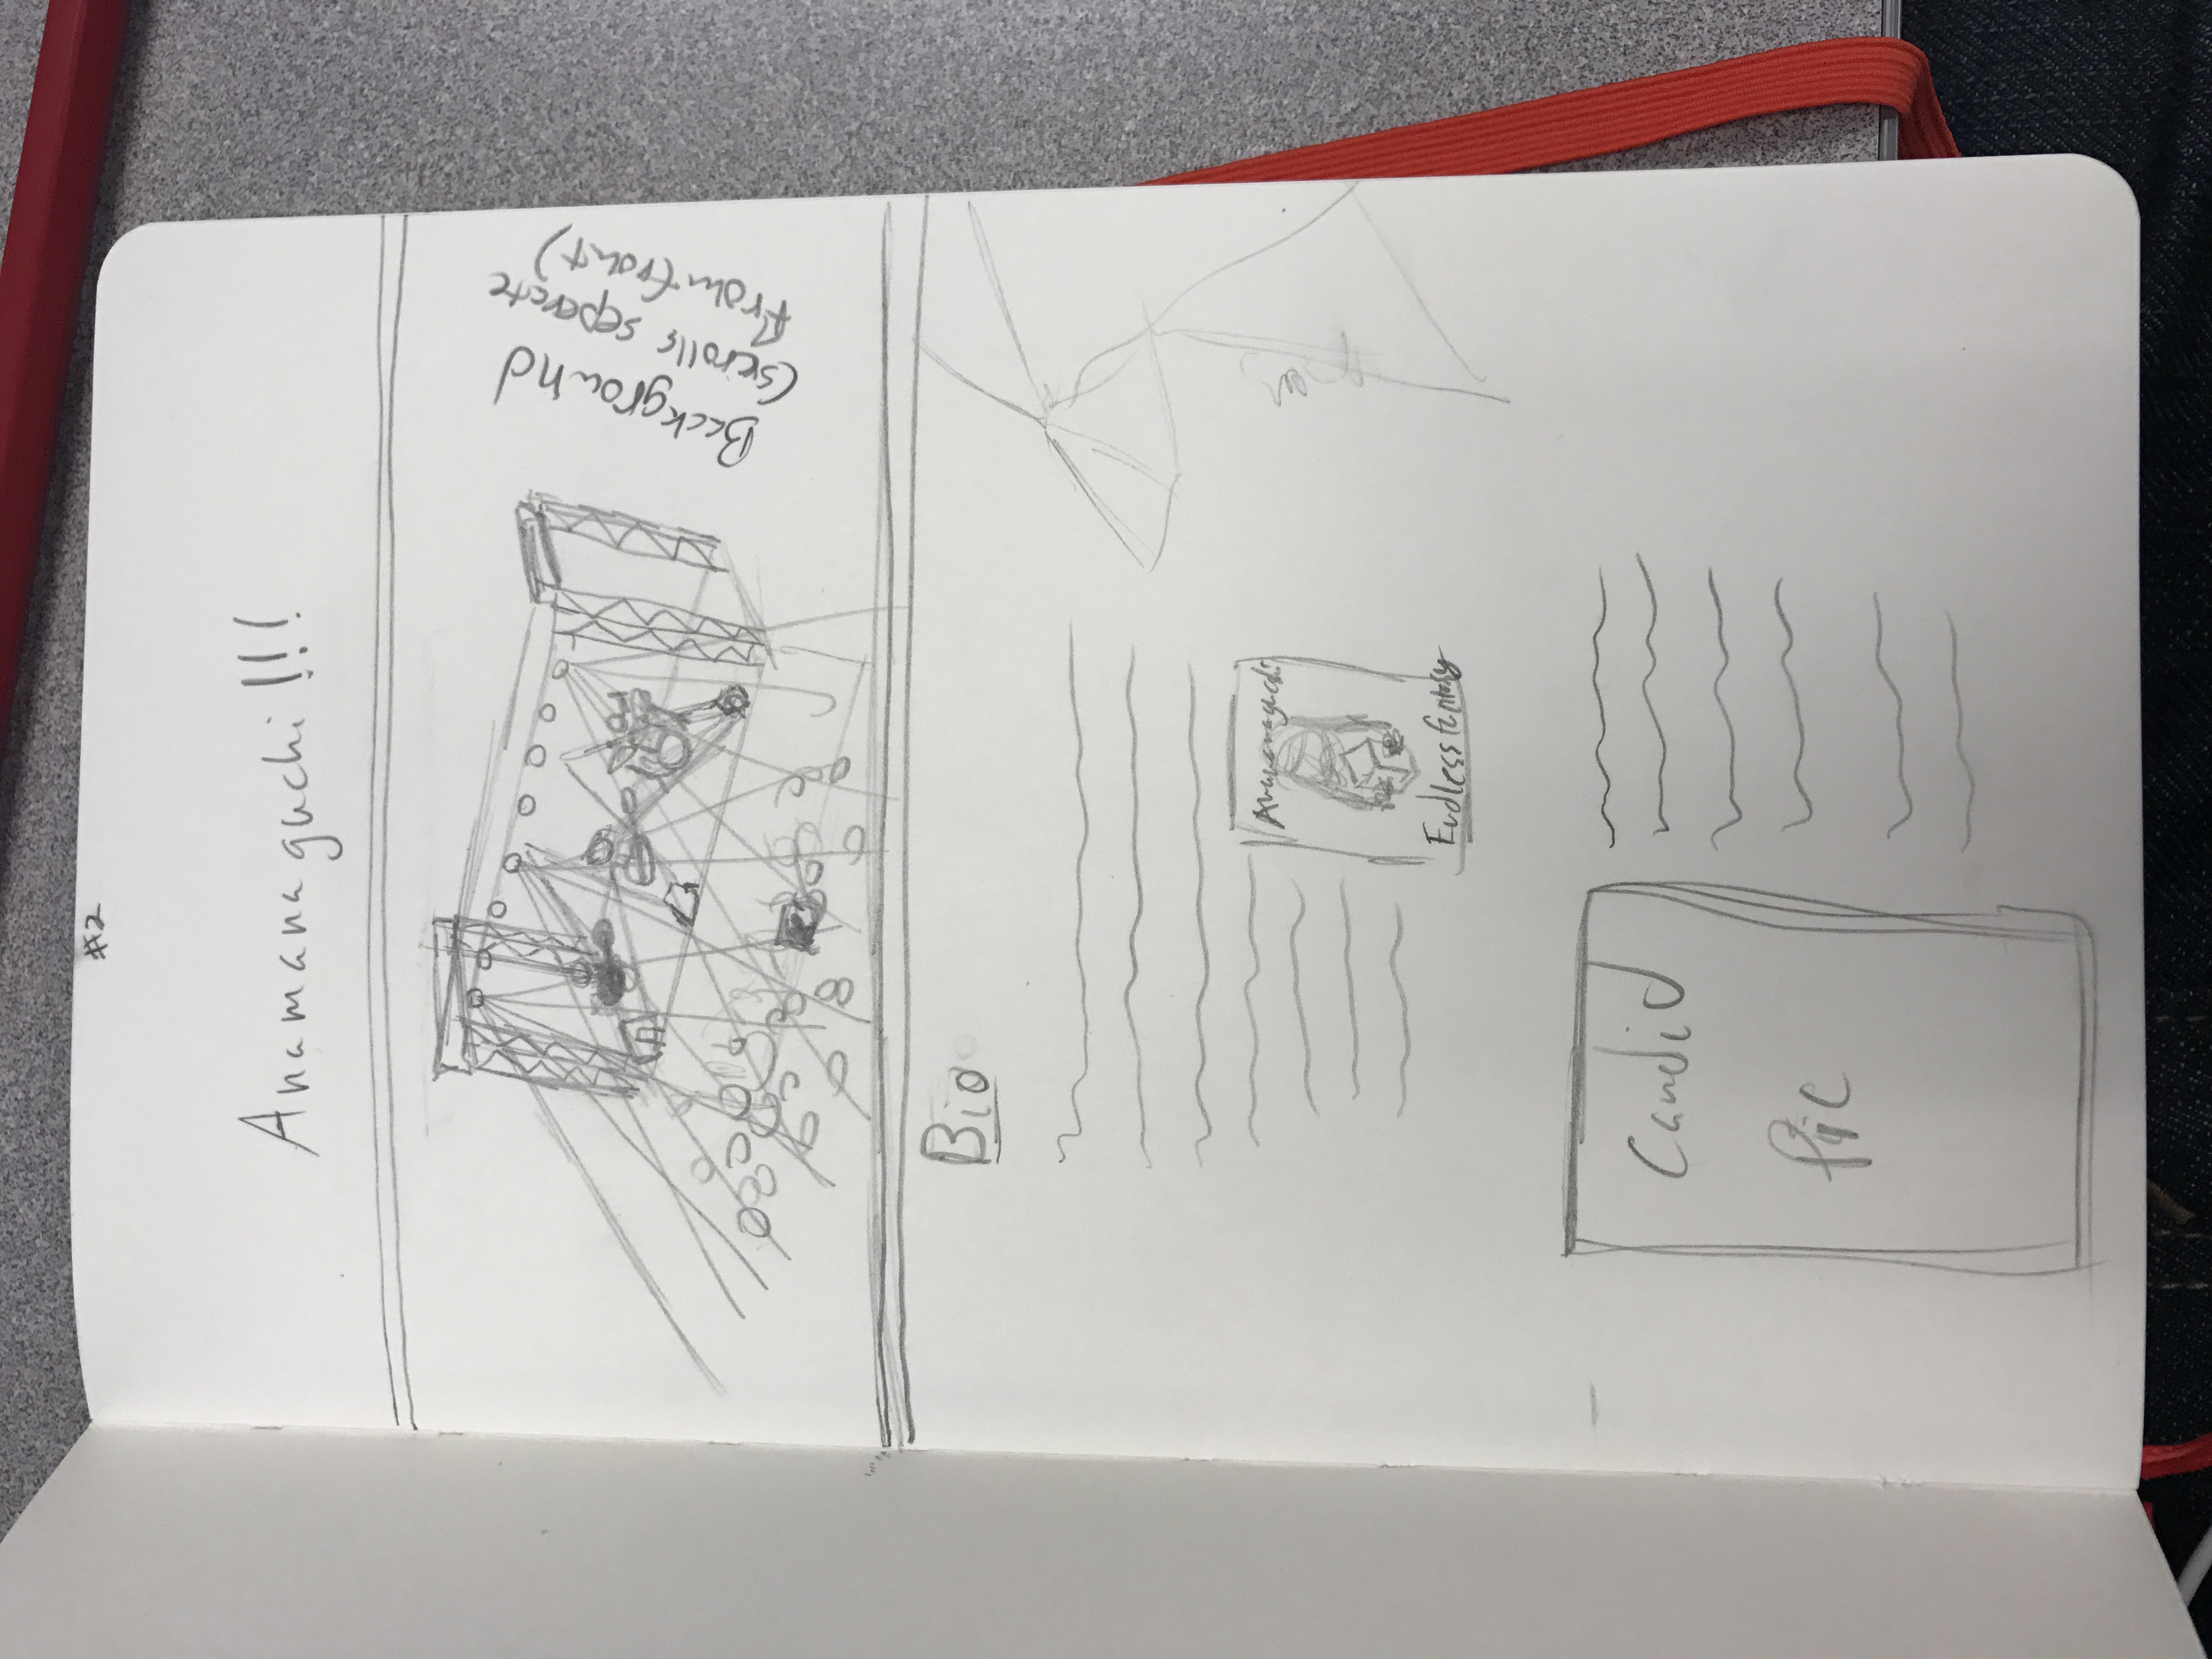 #2
Anamanaguchi!!!
Background
(scrolls seperate
from front)
Bio
Anamanaguchi
Endless Fantasy
Candid
Pic